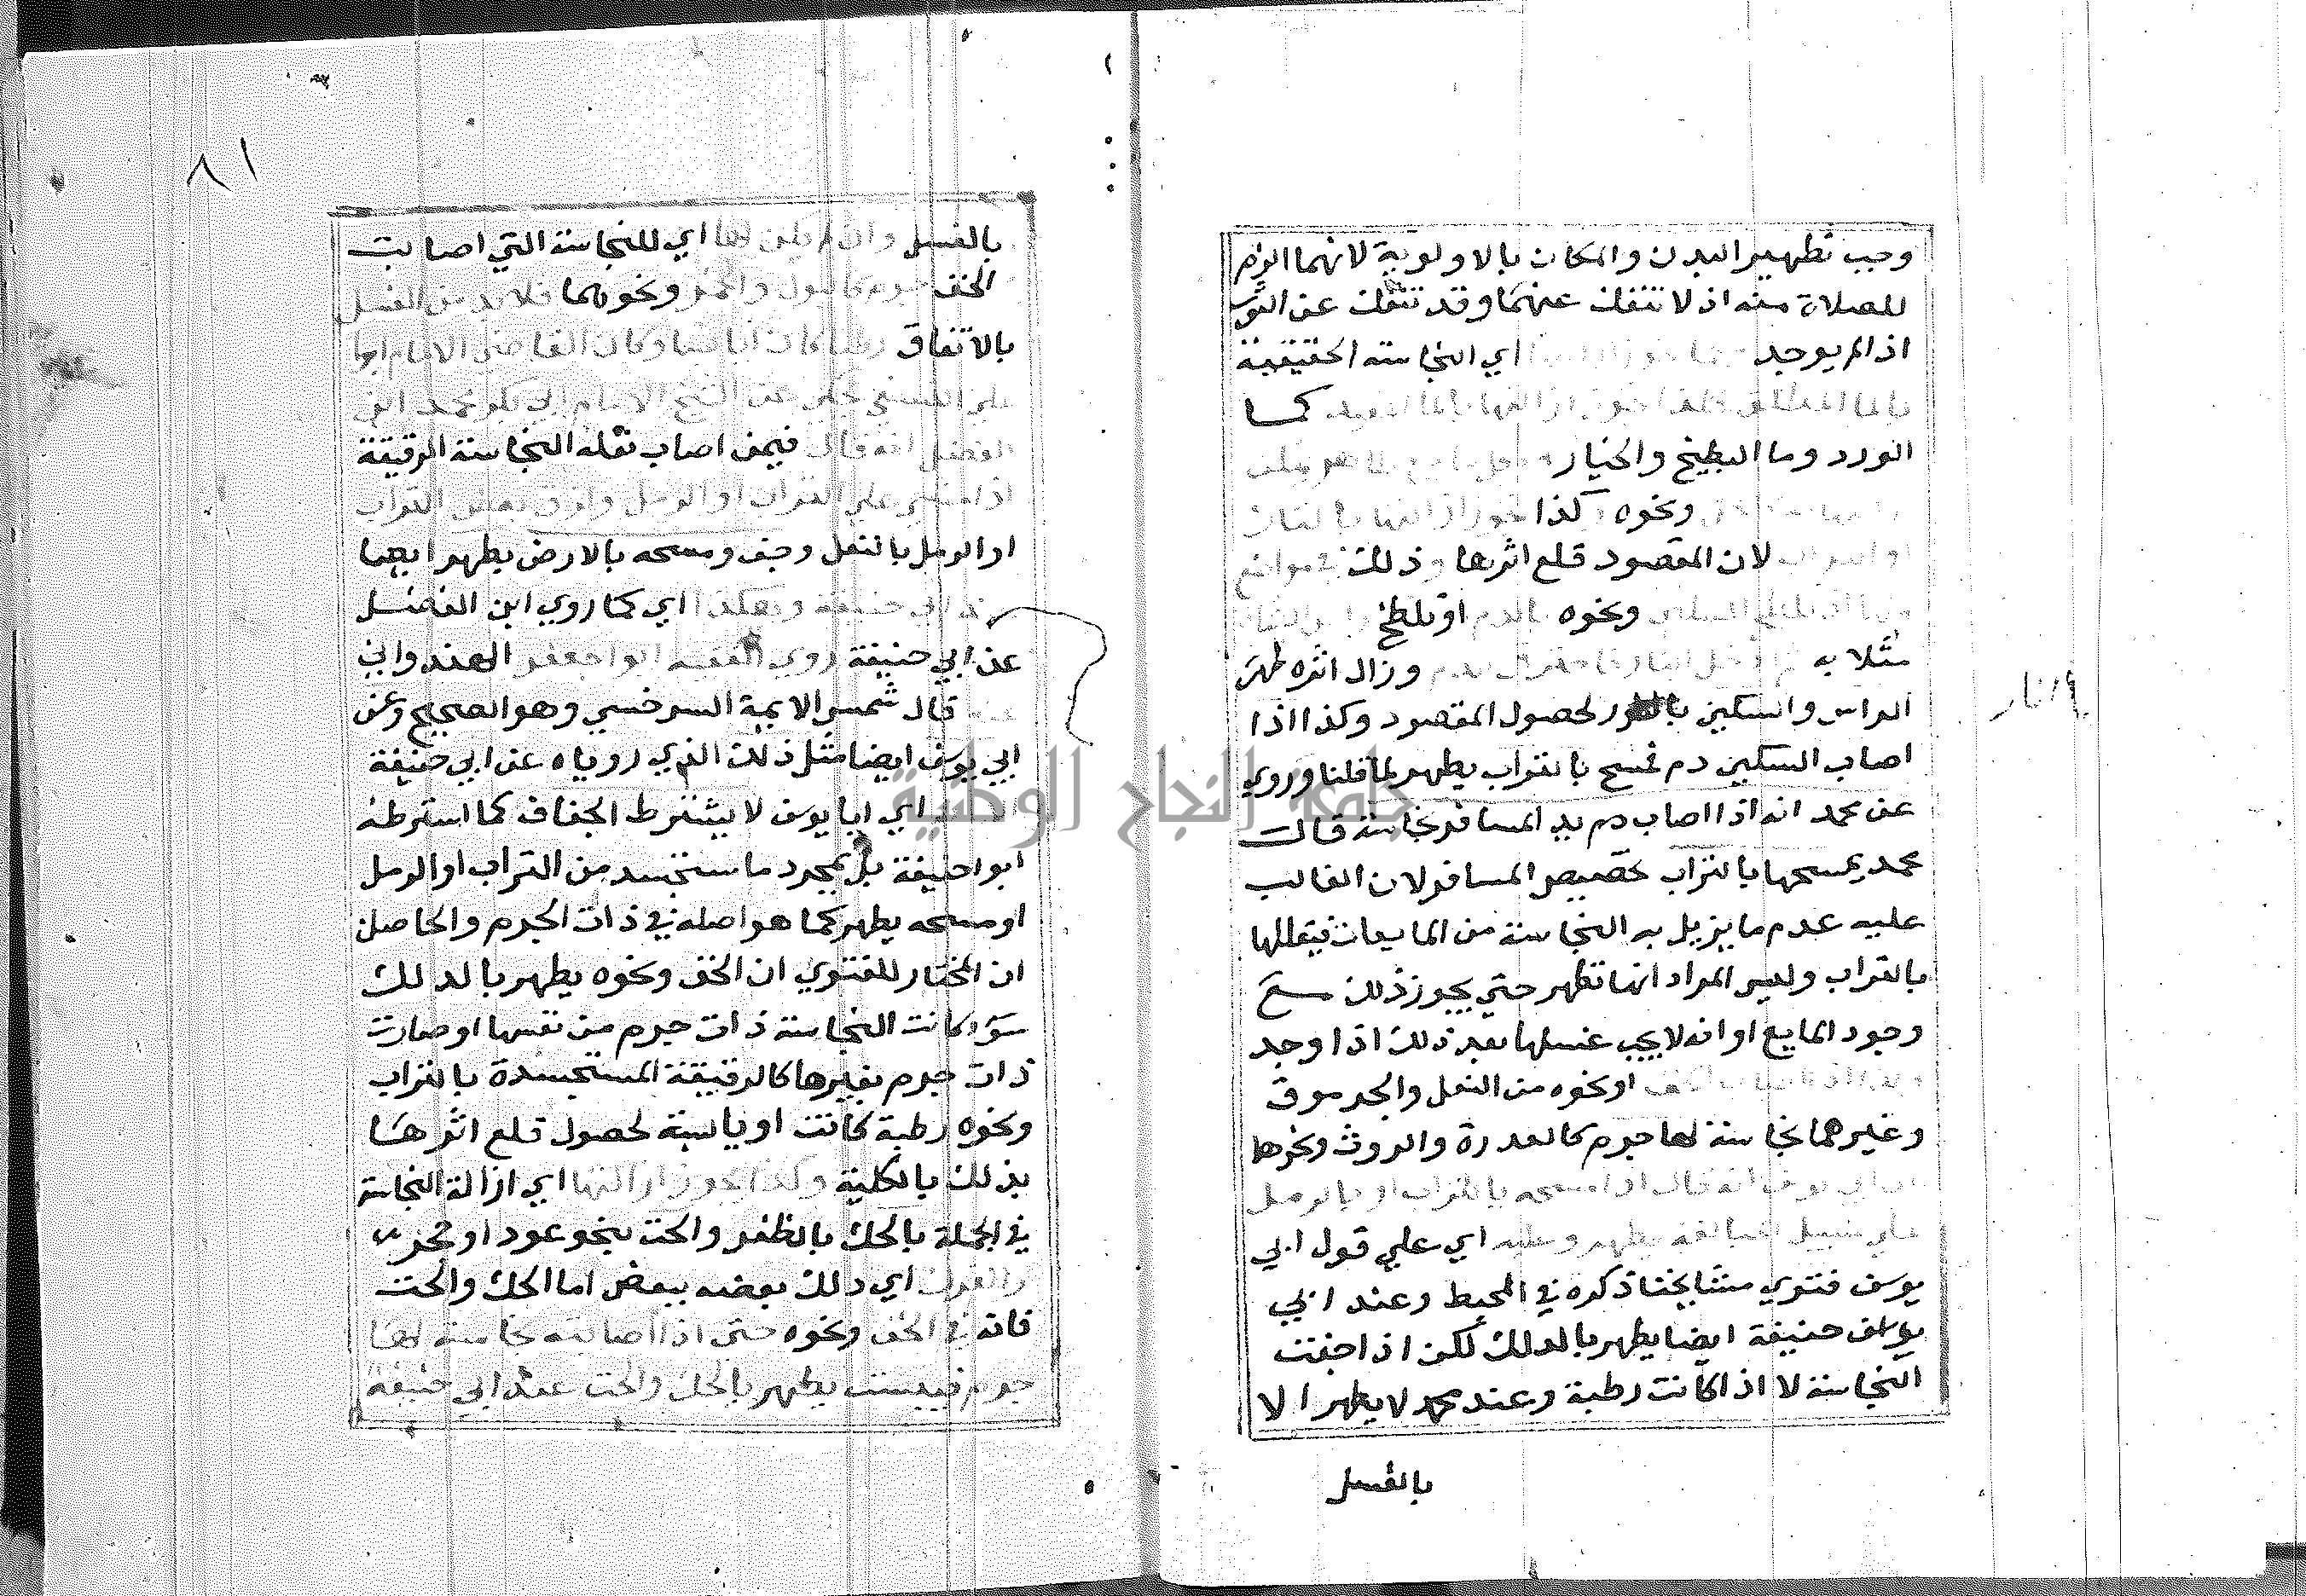 وجب تطهير البدن والمكان بالاولوية لانهما الزم
للصلاة منه اذ لا تنفك عنهما وقد تنفك عن الثوب
اذا لم يوجد اي النجاسة الحقيقية
كما
الورد وما البطيخ والخيار
ونحوه كذا
لان المقصود قلع اثرها وذلك في مواضع
ونحوه بالدم او تلطخ
مثلا به وزال اثره طهر
الراس والسكين لحصول المقصود وكذا اذا
اصاب السكين دم فمسح بالتراب يطهر لما قلنا وروي
عن محمد انه اذا اصاب دم يد المسافر نجاسة قال
محمد يمسحها بالتراب تخصيص المسافر لان الغالب
عليه عدم ما يزيل به النجاسة من المايعات فيقللها
بالتراب وليس المراد انها تطهر حتي يجوز ذلك مع
وجود المايع او انه لا يجب غسلها بعد ذلك اذا وجد
او نحوه من النعل والجرموق
وغيرهما نجاسة لها جرم كالعذرة والروث ونحوها
ابي يوسف انه قال اذا مسحه بالتراب او بالرمل
علي سبيل المبالغة يطهر وعليه اي علي قول ابي
يوسف فتوي مشايخنا ذكره في المحيط وعند ابي
يوسف حنيفة ايضا يطهر بالدلك لكن اذا جفت
النجاسة لا اذا كانت رطبة وعند محمد لا يطهر الا
بالغسل
النار
٨١
بالغسل وان لم يكن لها اي للنجاسة التي اصابت
الخف جرم كالبول والخمر ونحوهما فلا بد من الغسل
بالاتفاق رطبا كان او يابسا وكان القاضي الامام ابو
علي النسفي يحكي عن الشيخ الامام ابي بكر محمد ابن
الفضل انه قال فيمن اصاب نعله النجاسة الرقيقة
اذا مشي علي التراب او الرمل ولزق بعض التراب
او الرمل بالنعل وجف ومسحه بالارض يطهر ايضا
عند ابي حنيفة وهكذا اي كما روي ابن الفضل
عن ابي حنيفة روي الفقيه ابو جعفر الهندواني
عنه قال شمس الايمة السرخسي وهو الصحيح وعن
ابي يوسف ايضا مثل ذلك الذي روياه عن ابي حنيفة
اي ابا يوسف لا يشترط الجفاف كما اشترطه
ابو احنيفة بل بمجرد ما ستجسد من التراب او الرمل
او مسحه يطهر كما هو اصله في ذات الجرم والحاصل
ان المختار للفتوي ان الخف ونحوه يطهر بالدلك
سواء كانت النجاسة ذات جرم من نفسها او صارت
ذات جرم بغيرها كالرقيقة المستجسدة بالتراب
ونحوه رطبة كانت او يابسة لحصول قلع اثرها
بذلك بالكلية وكذا يجوز ازالتها اي ازالة النجاسة
في الجملة بالحك بالظفر والحت بنحو عود او حجر
والفرك اي دلك بعضه ببعض اما الحك والحت
فانه في الخف ونحوه حتي اذا اصابته نجاسة لها
جرم فيبست يطهر بالحك والحت عند ابي حنيفة
جامعة النجاح الوطنية